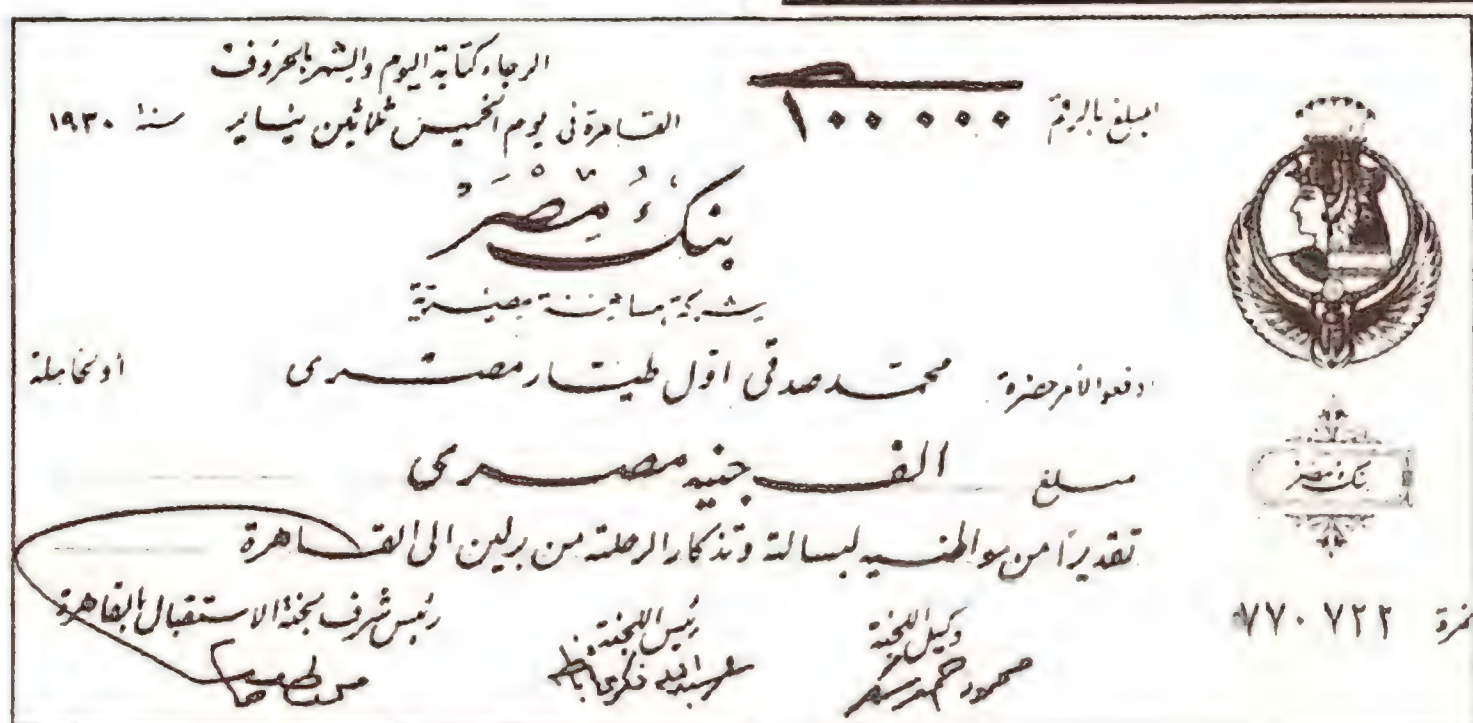 الرجاء كتابة اليوم والشهر بالحروف
المبلغ بالرقم ١٠٠ ٠٠٠
القاهرة فى يوم الخميس ثلاثين يناير سنة ١٩٣٠
بنك مصر
شركة مساهمة مصرية
ادفعوا لأمر حضرة محمد صدقى اول طيار مصرى أو لحامله
مبلغ الف جنيه مصرى
تقديرا من مواطنيه لبسالته وتذكار الرحلته من برلين الى القاهرة
بنك مصر
نمرة ٧٧٠ ٧٢٢
وكيل اللجنة
رئيس اللجنة
رئيس شرف لجنة الاستقبال بالقاهرة